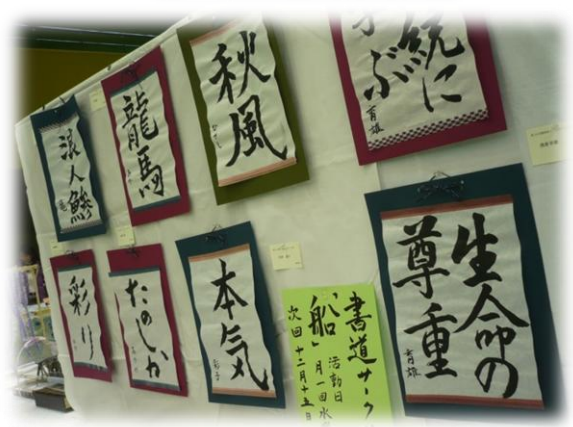 浪人鯵
龍馬
秋風
統に
学ぶ
育雄
彩り
たのしか
本気
彩子
書道サーク
「船」
活動日
月一回水
次回十二月十五
生命の
尊重
育雄